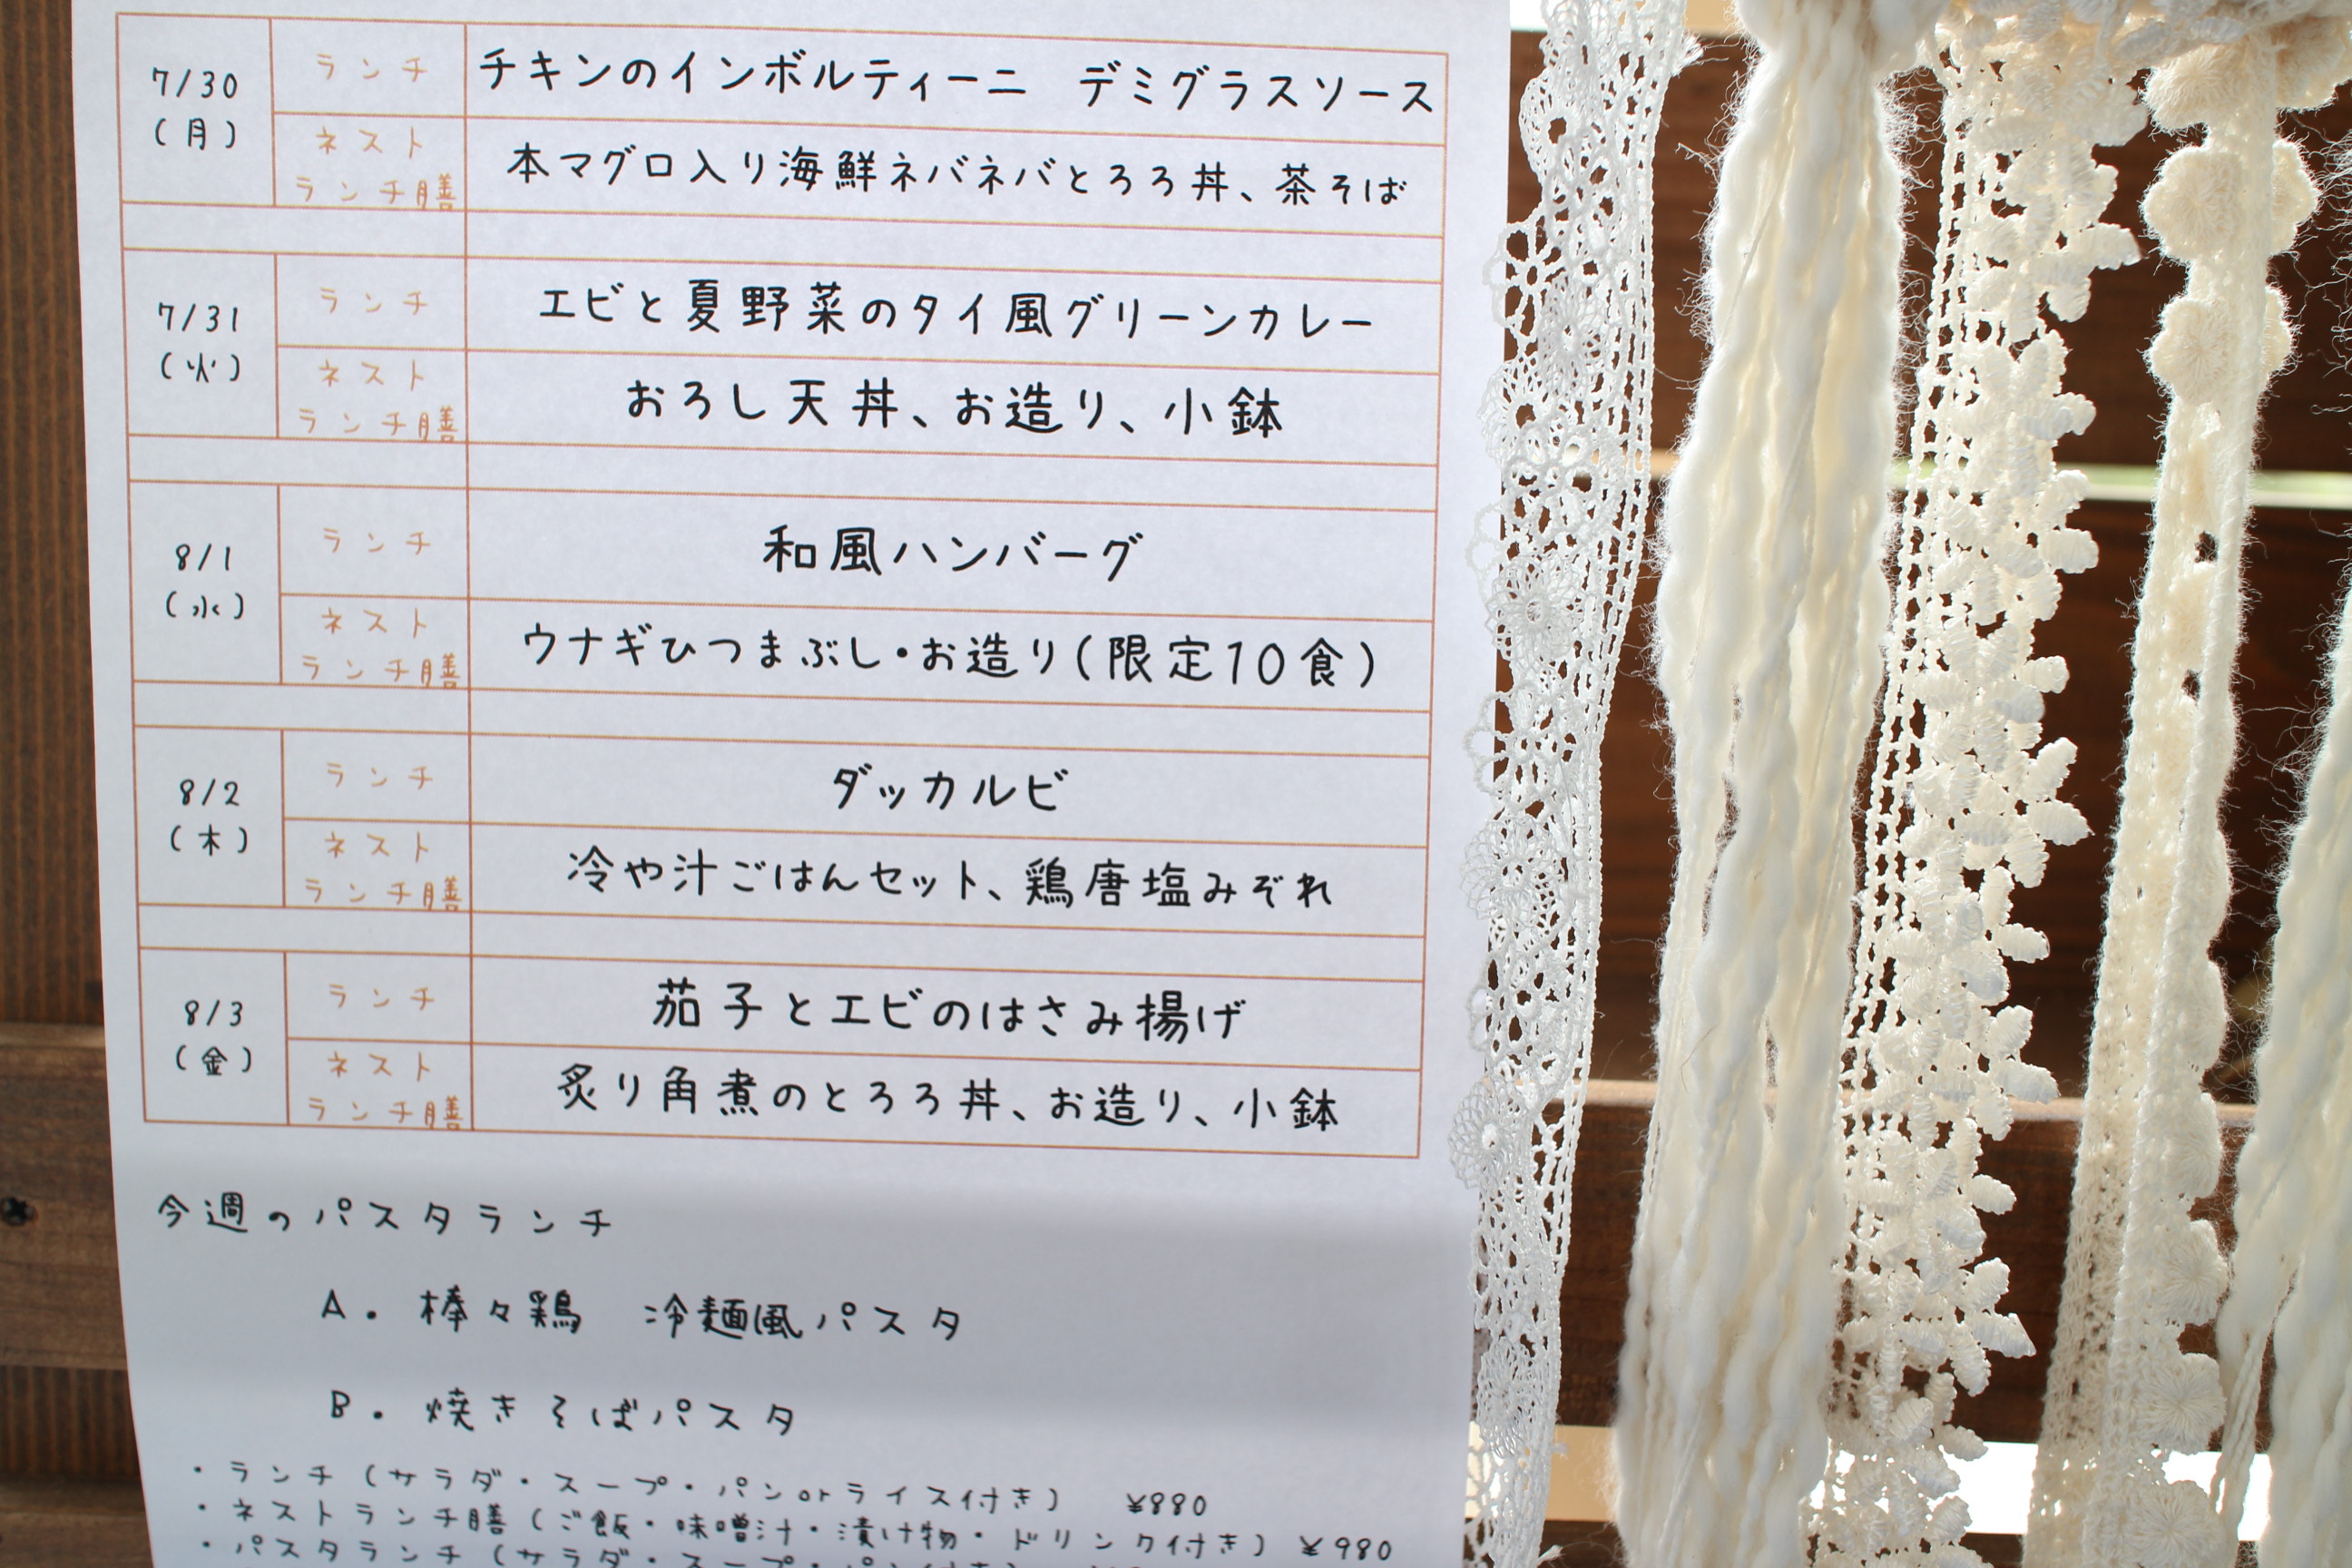 7/30
(月)
ランチ
チキンのインボルティーニ デミグラスソース
ネスト
ランチ膳
本マグロ入り海鮮ネバネバとろろ丼、茶そば
7/31
(火)
ランチ
エビと夏野菜のタイ風グリーンカレー
ネスト
ランチ膳
おろし天丼、お造り、小鉢
8/1
(水)
ランチ
和風ハンバーグ
ネスト
ランチ膳
ウナギひつまぶし・お造り(限定10食)
8/2
(木)
ランチ
ダッカルビ
ネスト
ランチ膳
冷や汁ごはんセット、鶏唐塩みぞれ
8/3
(金)
ランチ
茄子とエビのはさみ揚げ
ネスト
ランチ膳
炙り角煮のとろろ丼、お造り、小鉢
今週のパスタランチ
A. 棒々鶏 冷麺風パスタ
B. 焼きそばパスタ
・ランチ(サラダ・スープ・パンorライス付き) ¥880
・ネストランチ膳(ご飯・味噌汁・漬け物・ドリンク付き) ¥980
・パスタランチ(サラダ・スープ・パン付き)